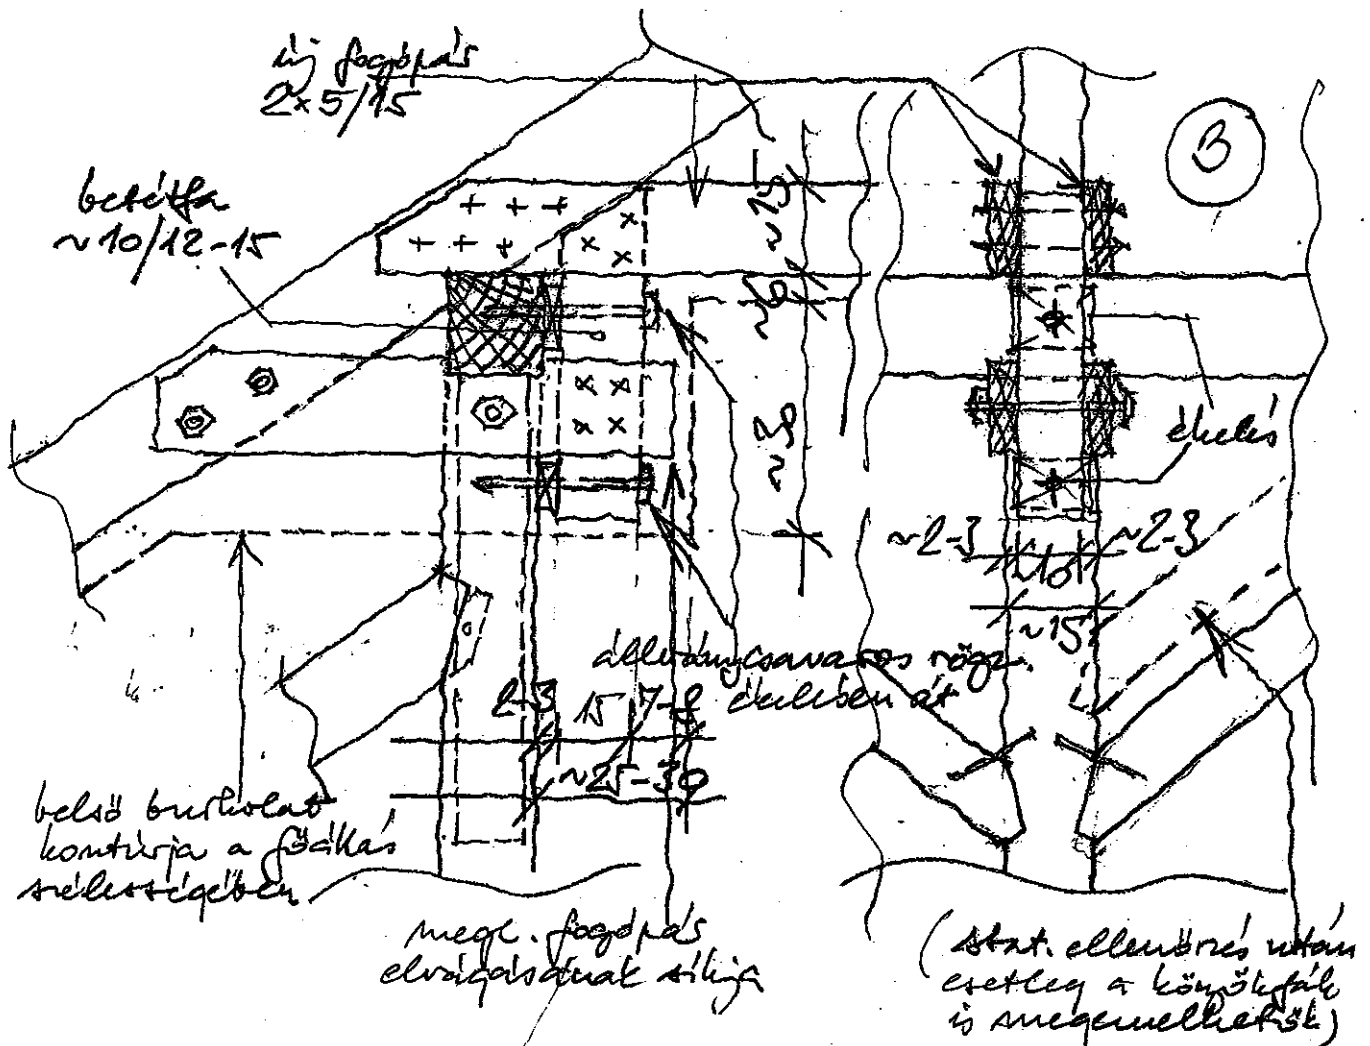 új fogópár
2×5/15
betétfa
~10/12-15
B
~15
~6
~30
ékelés
~2-3
~2-3
~10
~15
állványcsavaros rögz.
ékelésben át
2-3
15
7-8
~25-30
belső burkolat
kontúrja a főállás
szélességében
megl. fogópár
elvágásának síkja
(stat. ellenőrzés után
esetleg a könyökfák
is megemelhetők)